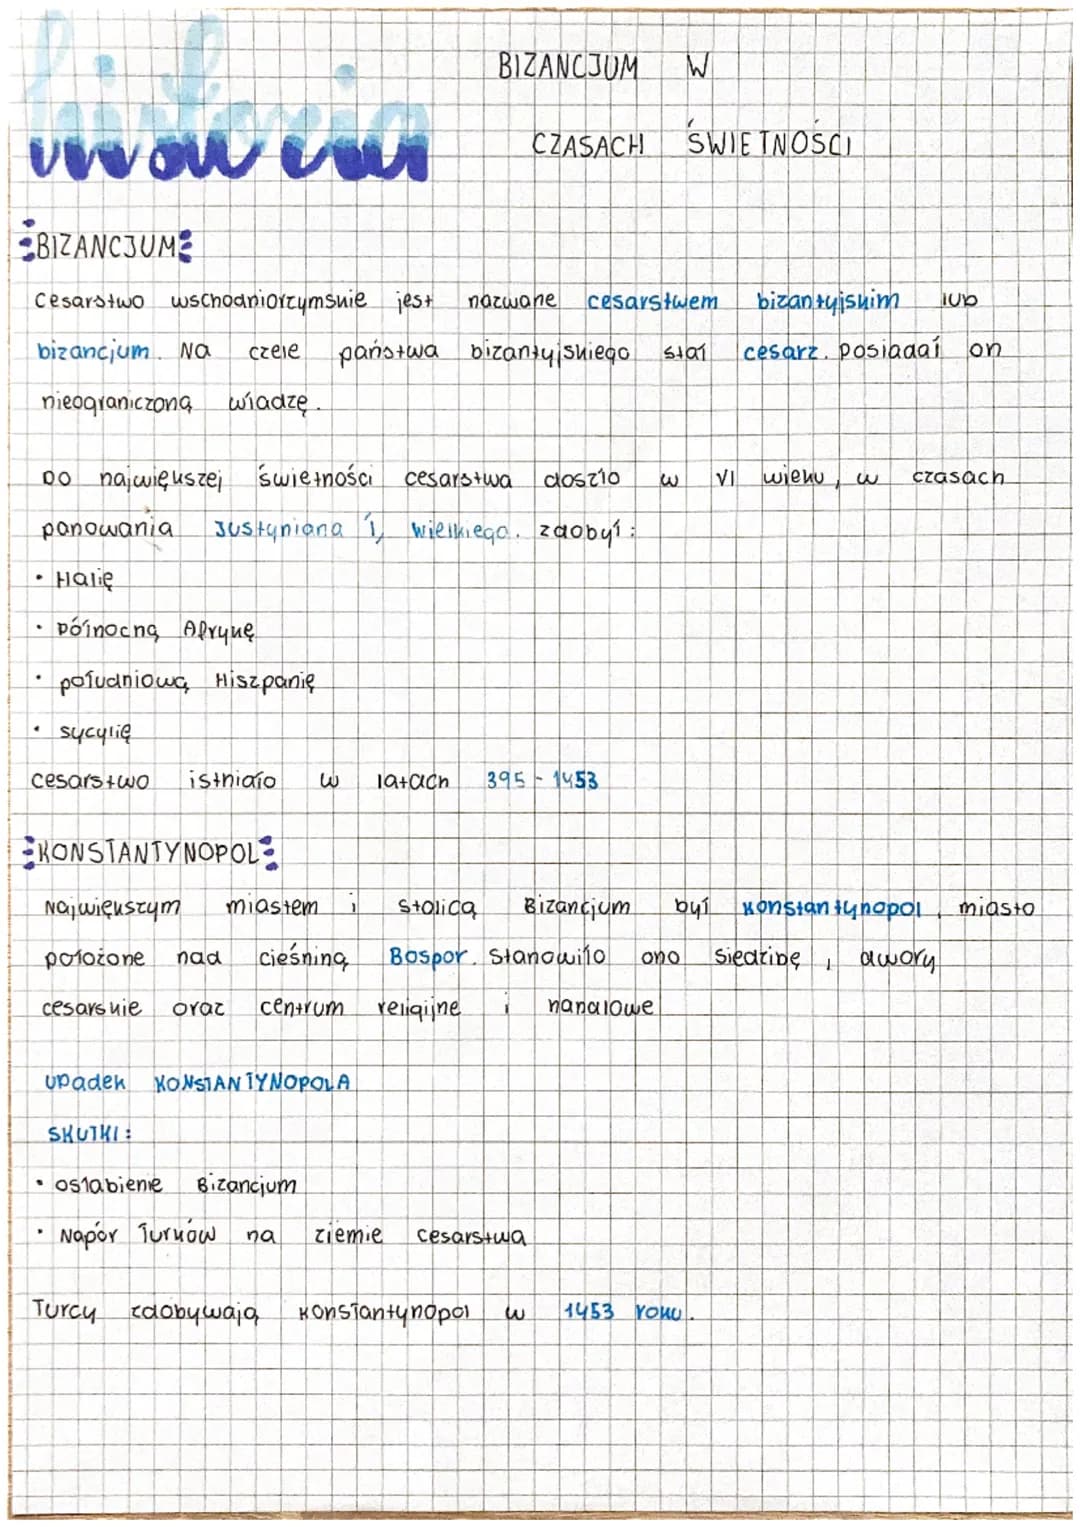 historia
BIZANCJUM W
CZASACH ŚWIETNOŚCI
BIZANCJUM
Cesarstwo wschodniorzymskie jest nazwane cesarstwem bizantyjskim lub
bizancjum. Na czele państwa bizantyjskiego stał cesarz. posiadał on
nieograniczoną władzę.
Do największej świetności cesarstwa doszło w VI wieku, w czasach
panowania Justyniana I, wielkiego. zdobył:
• Italię
• Północną Afrykę
• południową Hiszpanię
• sycylię
cesarstwo istniało w latach 395 - 1453
KONSTANTYNOPOL
Największym miastem i stolicą Bizancjum był Konstantynopol, miasto
położone nad cieśniną Bospor. Stanowiło ono siedzibę, dwory
cesarskie oraz centrum religijne i handlowe
upadek KONSTANTYNOPOLA
SKUTKI:
• osłabienie Bizancjum
• Napór Turków na ziemie cesarstwa
Turcy zdobywają Konstantynopol w 1453 roku.